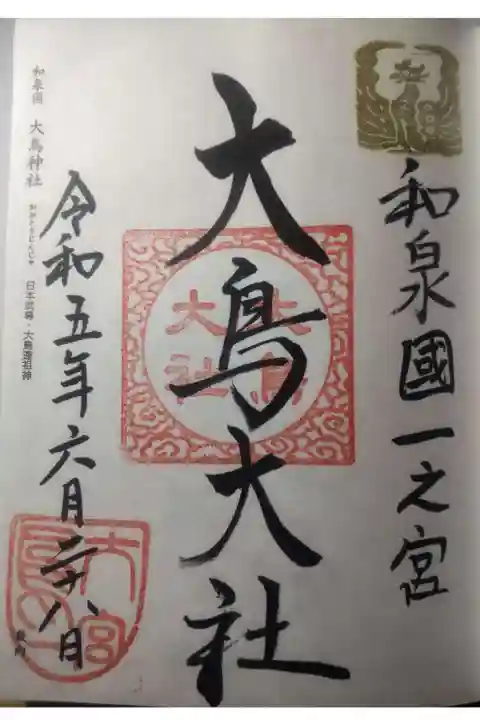 和泉國一之宮
大鳥大社
大鳥
大社
令和五年六月二十八日
和泉国 大鳥神社 おおとりじんじゃ 日本武尊・大鳥連祖神